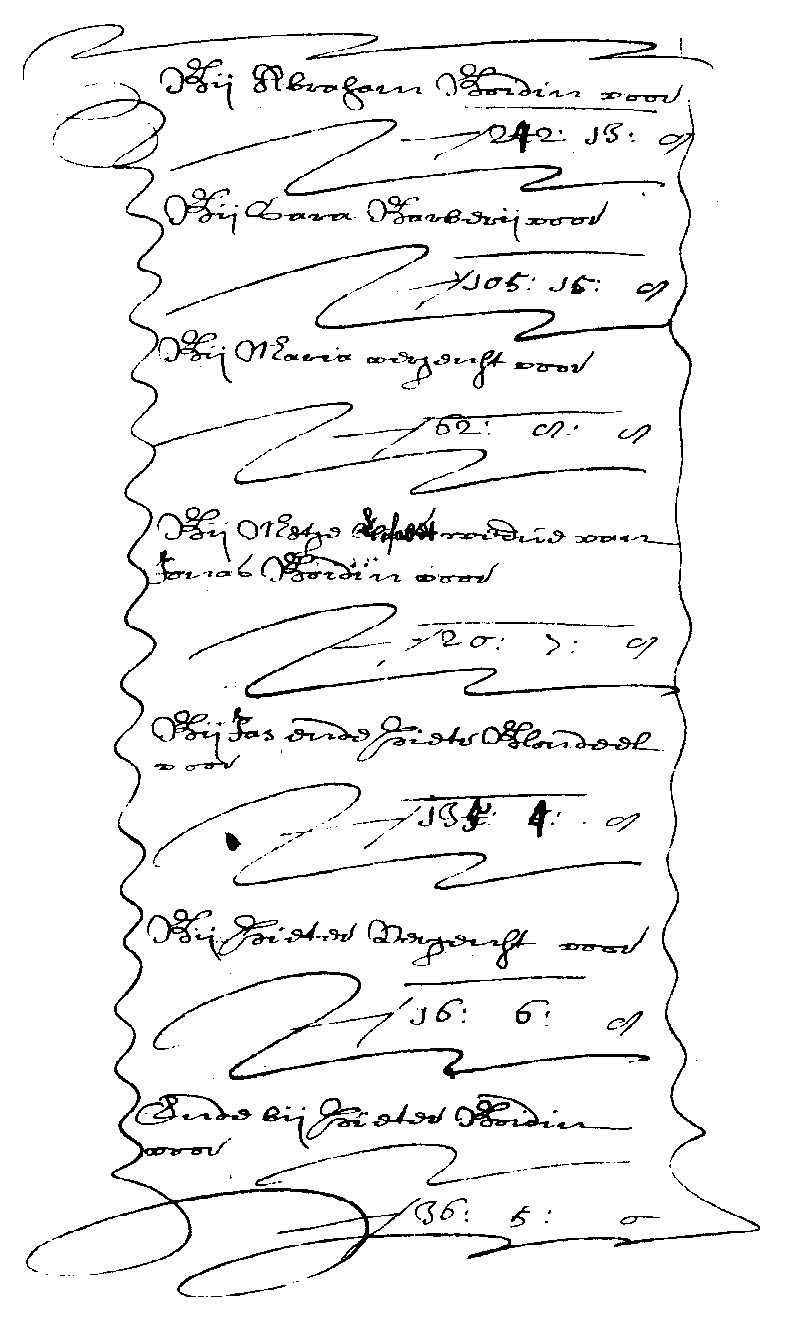 Bij Abraham Boidin voor
242: 13: 0
Bij Sara Barberij voor
105: 15: 0
Bij Maria vergucht voor
62: 0: 0
Bij Metje wedue van
Jonas Boidijn voor
20: 7: 0
Bij Jas ende Pieter Blondeel
voor
0
Bij Pieter Vergucht voor
16: 6: 0
Ende bij Pieter Boidin
voor
36: 5: 0